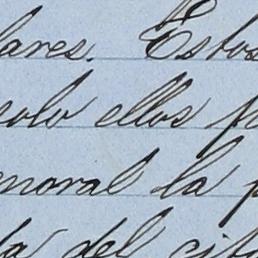 lares. Estos
solo ellos
moral la p
del cita